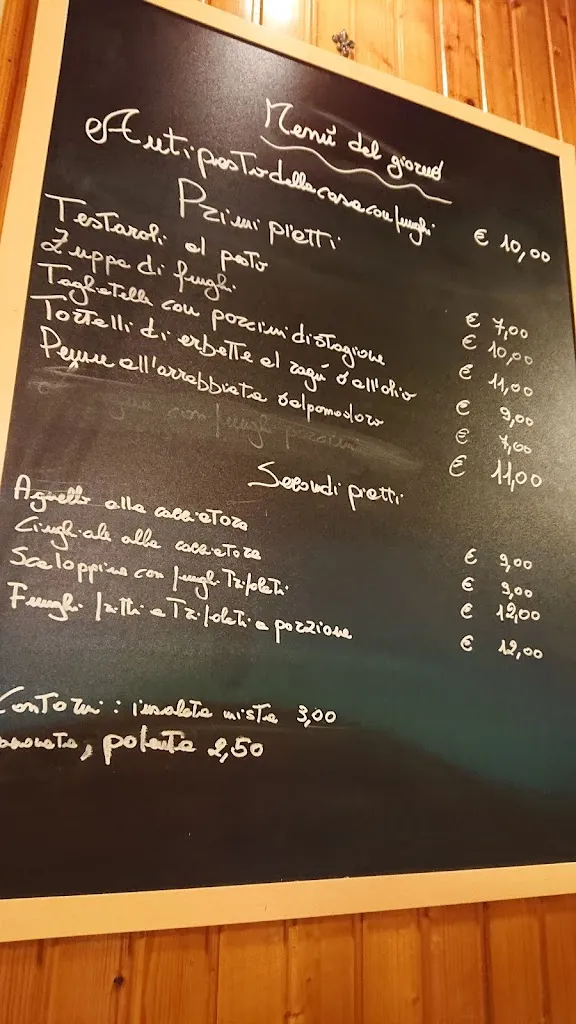 Menù del giorno
Antipasto della casa con funghi € 10,00
Primi piatti
Testaroli al pesto € 7,00
Zuppa di funghi € 10,00
Tagliatelle con porcini di stagione € 11,00
Tortelli di erbette al ragù o all'olio € 9,00
Penne all'arrabbiata o al pomodoro € 7,00
con funghi porcini € 11,00
Secondi piatti
Agnello alla cacciatora € 9,00
Cinghiale alla cacciatora € 9,00
Scaloppine con funghi Trifolati € 12,00
Funghi fritti e Trifolati a porzione € 12,00
Contorni: insalata mista 3,00
polenta 2,50